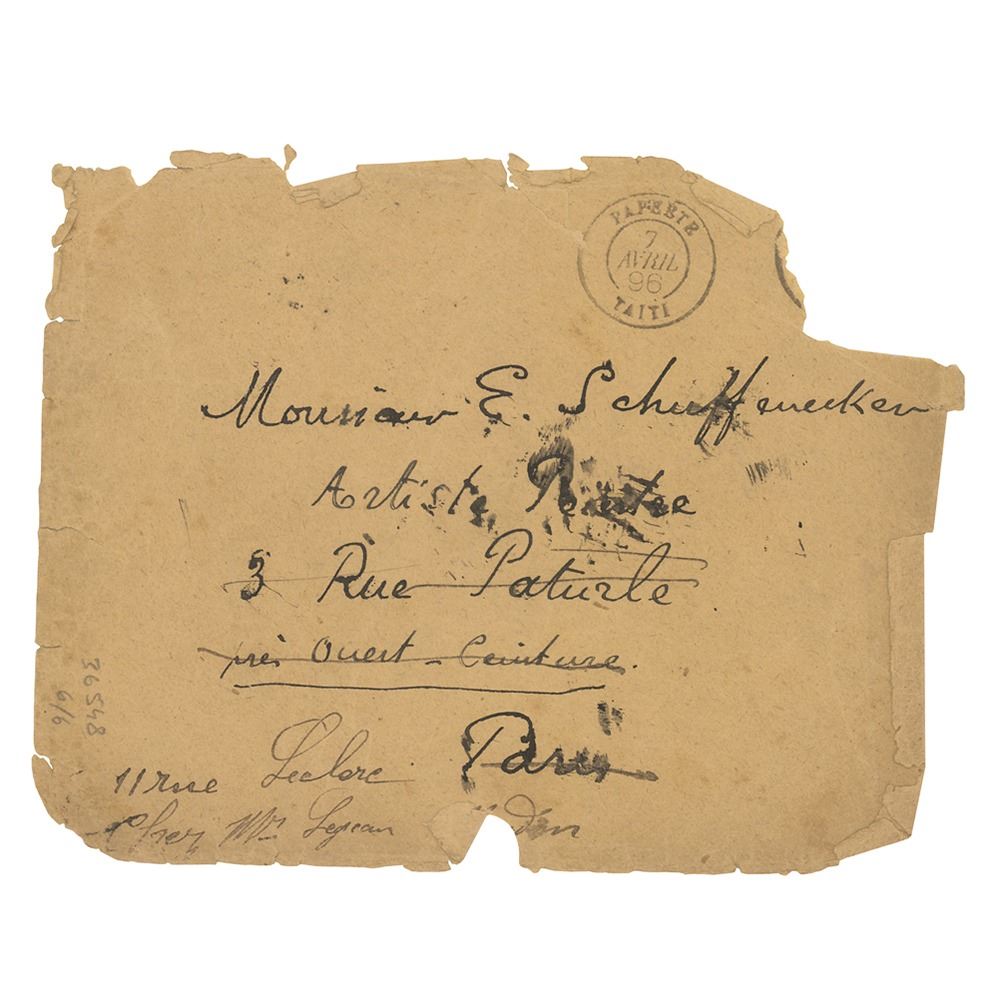 PAPEETE
7
AVRIL
96
TAITI
Monsieur E. Schuffenecker
Artiste Peintre
3 Rue Paturle
près Ouest-Ceinture.
Paris
11 rue Leclerc
Chez Mr
36548
6/6